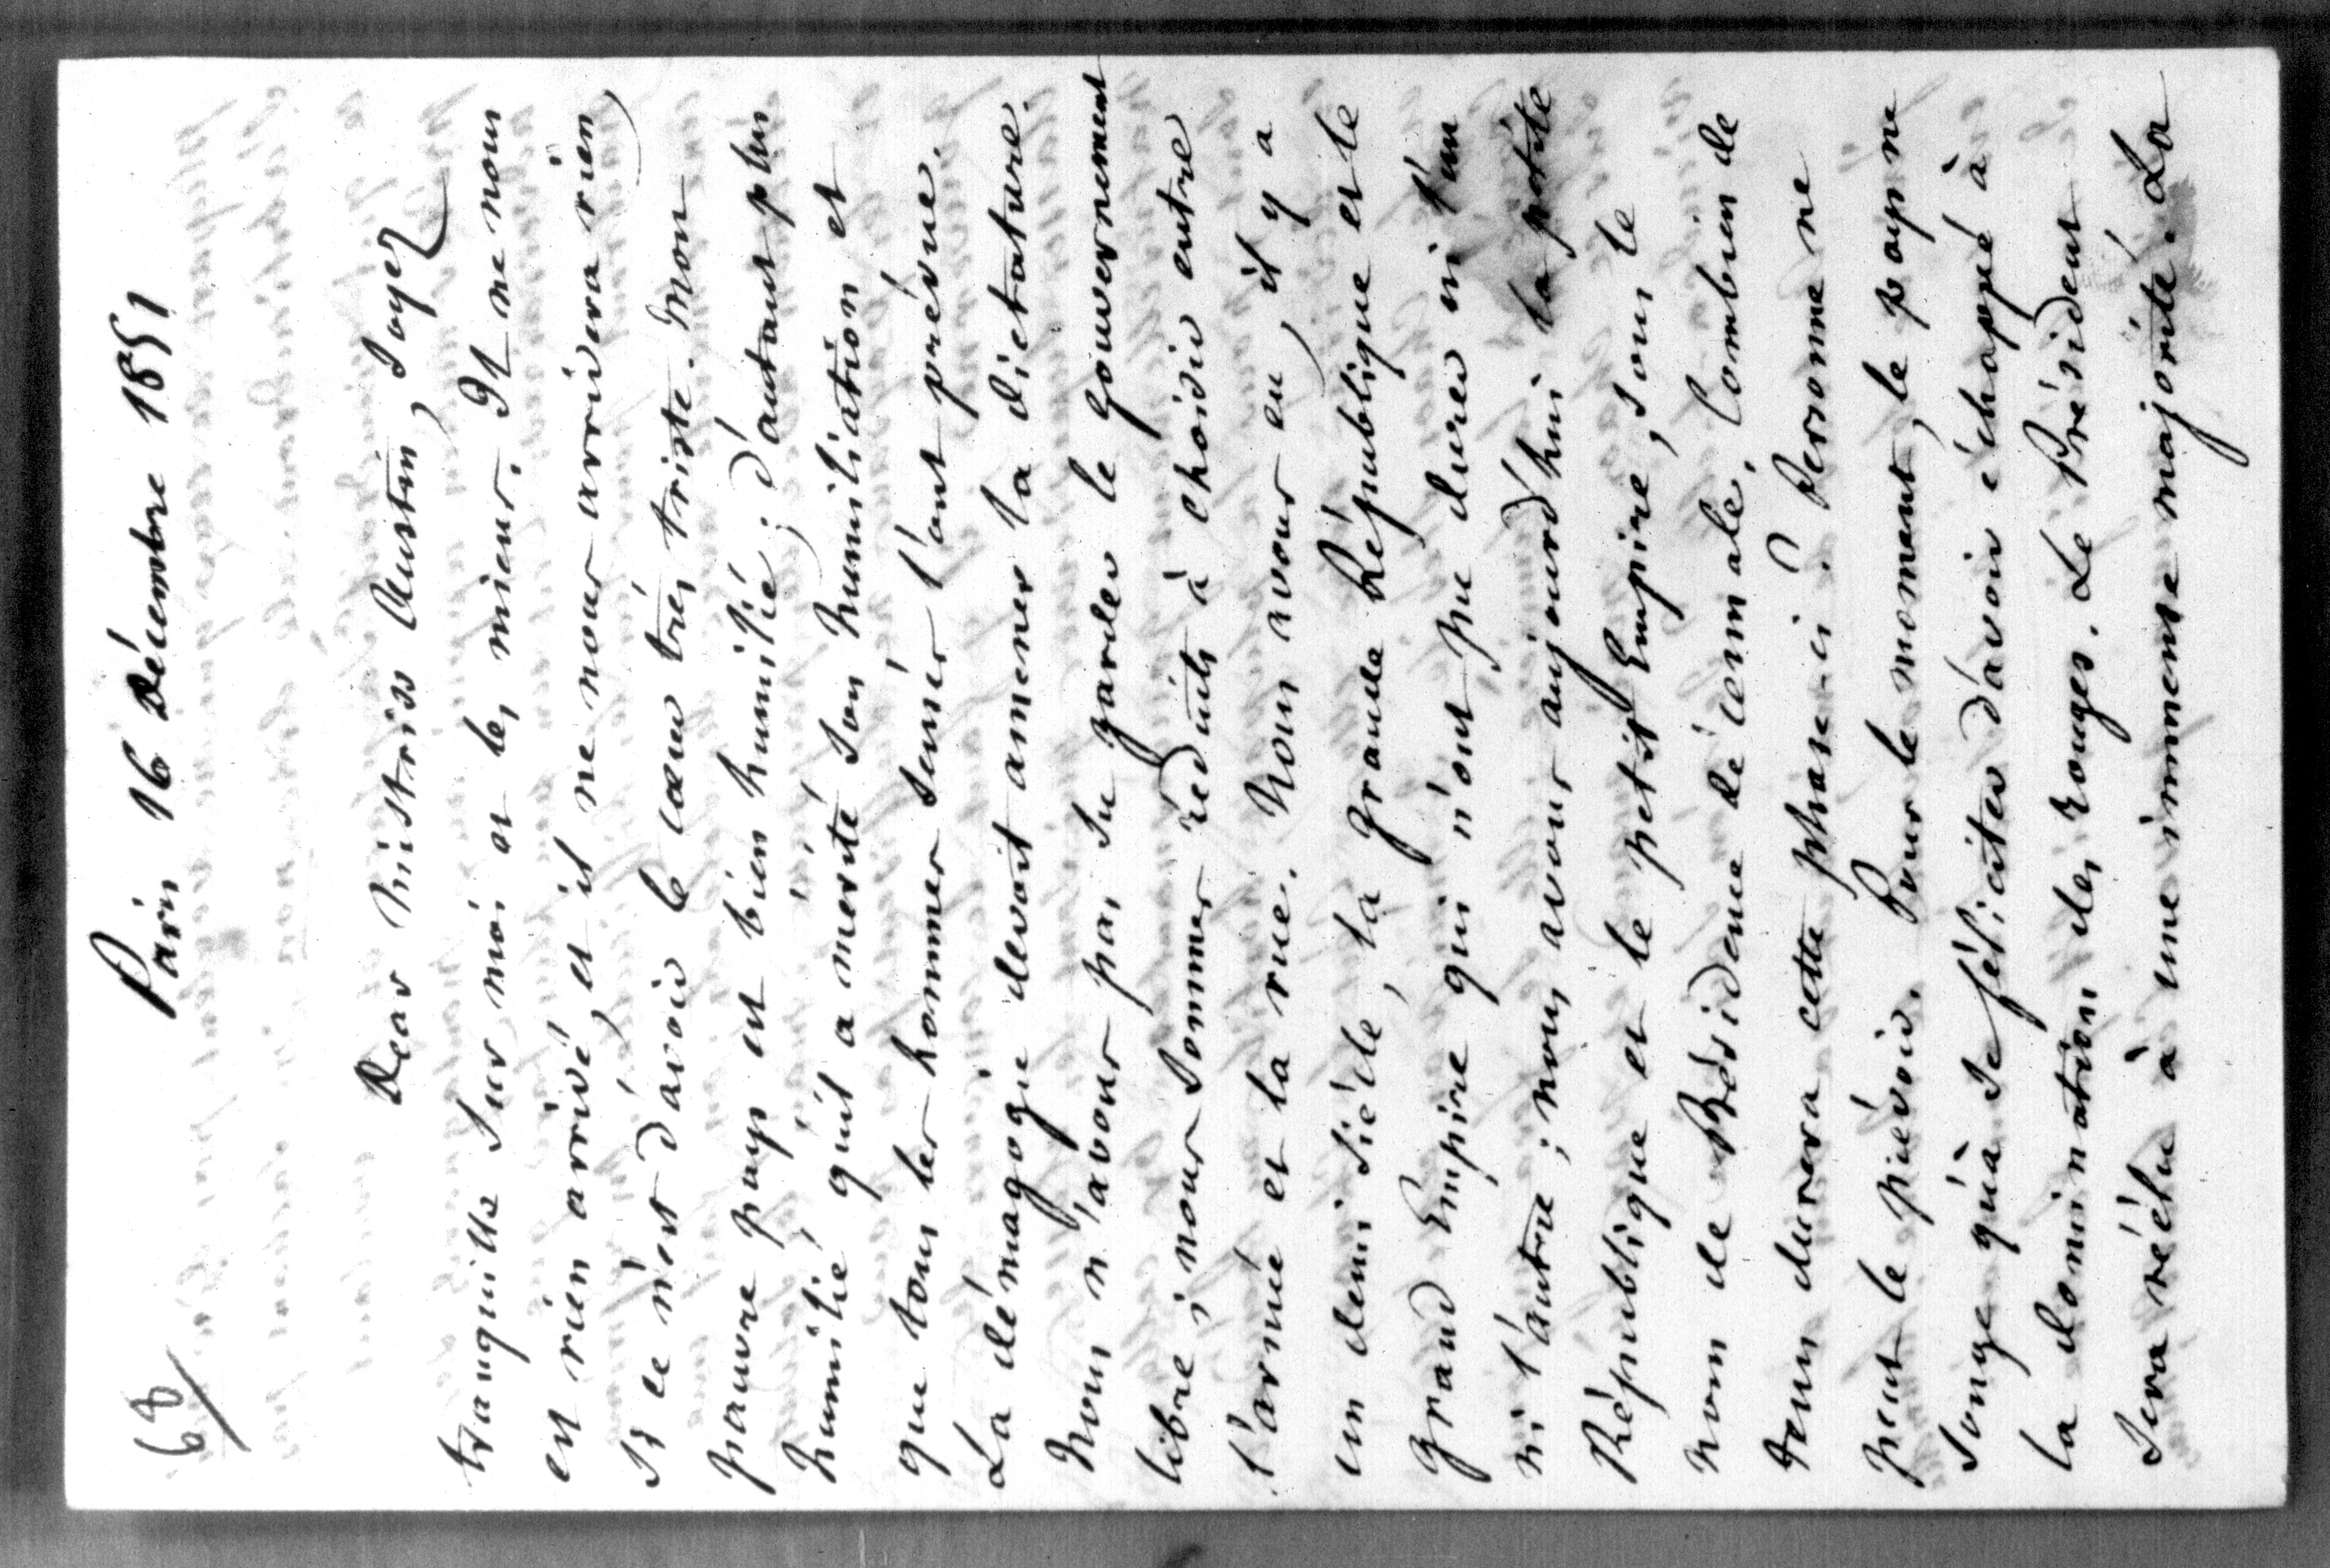 68
Paris 16 Décembre 1851
Dear Mistriss Austin, soyez
tranquille sur moi et les miens. Il ne nous
est rien arrivé, et il ne nous arrivera rien,
si ce n'est d'avoir le cœur très triste. Mon
pauvre pays est bien humilié; d'autant plus
humilié qu'il a mérité son humiliation et
que tous les hommes sensés l'ont prévue.
La démagogie devait amener la dictature.
Nous n'avons pas su garder le gouvernement
libre; nous sommes réduits à choisir entre
l'armée et la rue. Nous avons eu, il y a
un demi siècle, la grande République et le
grand Empire qui n'ont pu durer ni l'un
ni l'autre; nous avons aujourd'hui la petite
République et le petit Empire, sous le
nom de Présidence décennale. Combien de
tems durera cette phase-ci? Personne ne
peut le prévoir. Pour le moment, le pays ne
songe qu'à se féliciter d'avoir échappé à
la domination des rouges. Le Président
sera réélu à une immense majorité. La